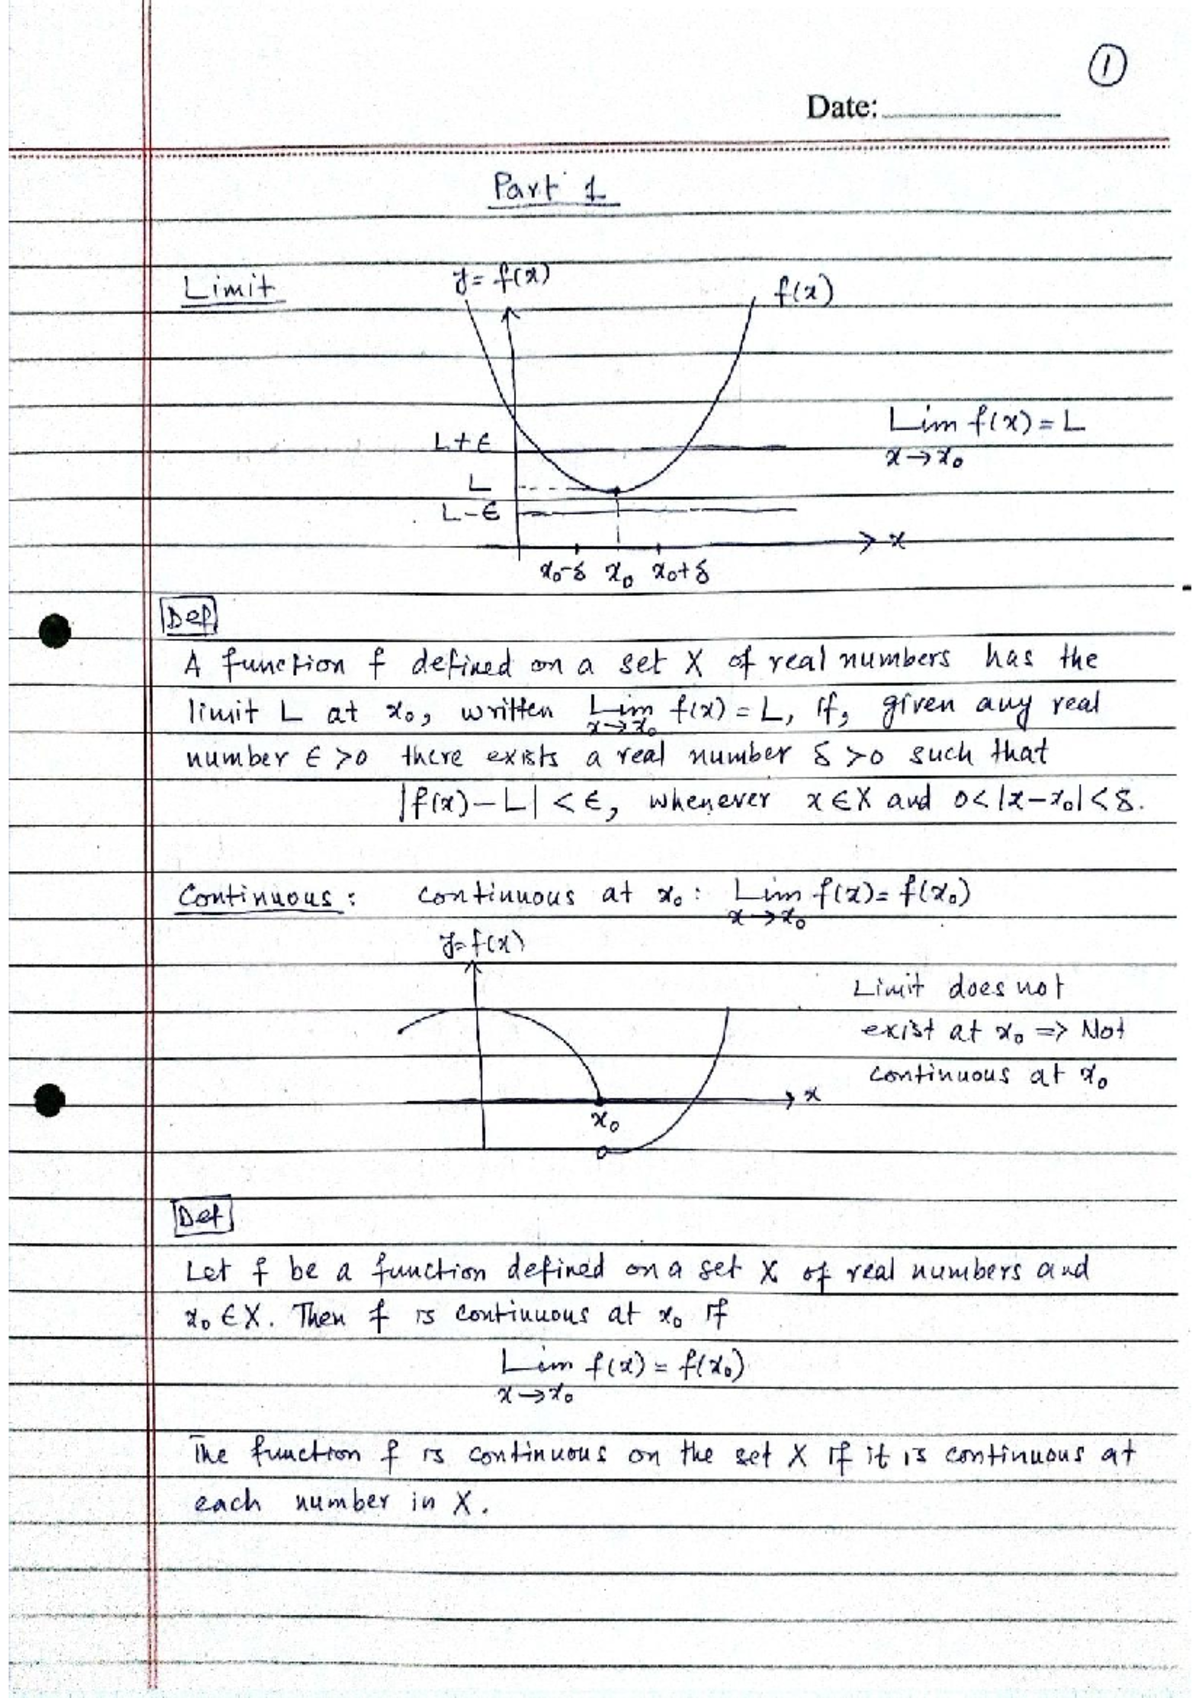 1
Date:
Part 1
Limit
y = f(x)
f(x)
L+ϵ
Lim f(x) = L
x→x₀
L
L-ϵ
x
x₀-δ x₀ x₀+δ
Def
A function f defined on a set X of real numbers has the
limit L at x₀, written Lim x→x₀ f(x) = L, if, given any real
number ϵ >0 there exists a real number δ >0 such that
|f(x) - L| < ϵ, whenever x ∈ X and 0<|x-x₀|<δ.
Continuous : continuous at x₀ : Lim x→x₀ f(x) = f(x₀)
y=f(x)
Limit does not
exist at x₀ => Not
continuous at x₀
x
x₀
Def
Let f be a function defined on a set X of real numbers and
x₀ ∈ X. Then f is continuous at x₀ if
Lim f(x) = f(x₀)
x→x₀
The function f is continuous on the set X if it is continuous at
each number in X.